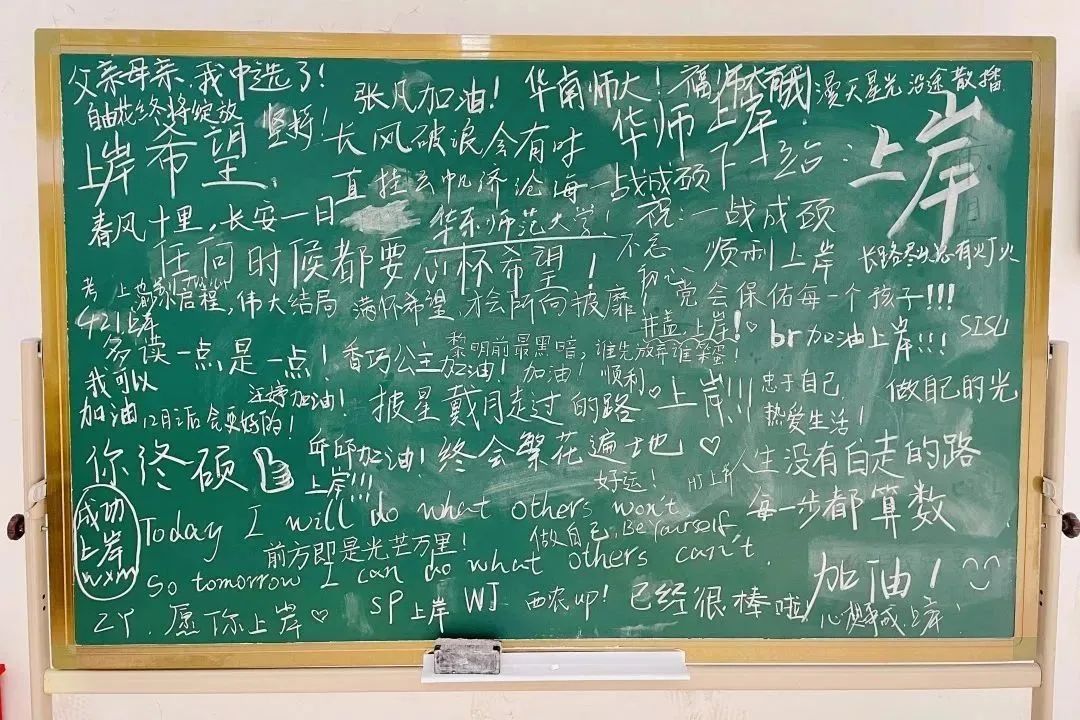 父亲母亲,我中选了!
张凡加油!
华南师大!
漫天星光沿途散播
自由花终将绽放
坚持!
长风破浪会有时
华师上岸!
上岸
上岸希望
直挂云帆济沧海
一战成硕
下一站:
春风十里,长安一日
华东师范大学!
祝:一战成硕
任何时候都要心怀希望!
不忘初心
顺利上岸
长路尽头总有灯火
启程,伟大结局
满怀希望,才会所向披靡
党会保佑每一个孩子!!!
421上岸
上岸!
br加油上岸!!!
SISU
多读一点是一点!
香巧公主加油!
黎明前最黑暗,谁先放弃谁笨蛋!
加油!
顺利上岸!!!
我可以
加油12月后会更好的!
加油!
披星戴月走过的路
忠于自己
热爱生活!
做自己的光
你终硕
加油!
上岸!!!
终会繁花遍地♡
好运!
HJ上岸
人生没有白走的路
每一步都算数
成功上岸wxm
Today I will do what others won't
前方即是光芒万里!
做自己,Be Yourself.
So tomorrow I can do what others can't.
加油!
ZY.愿你上岸♡
SP上岸
WJ
西农up!
已经很棒啦!
心想事成,上岸!